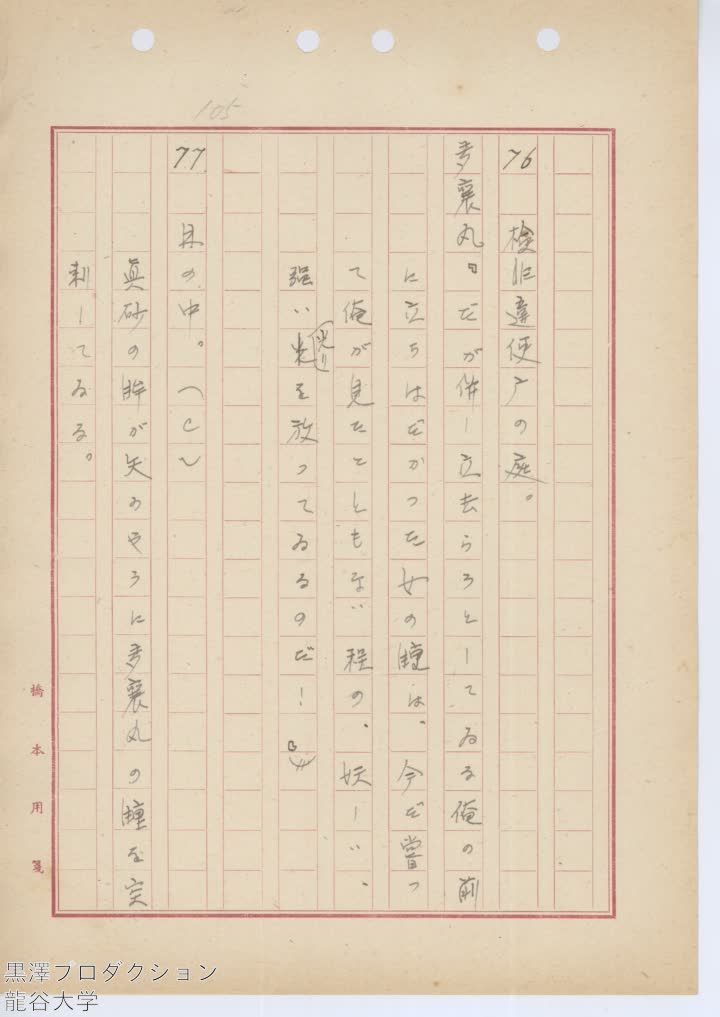 105
76　検非違使庁の庭。
多襄丸『だが併し立去らうとしてゐる俺の前
に立ちはだかつた女の瞳は、今だ嘗つ
て俺が見たこともない程の、妖しい、
強い光りを放つてゐるのだ！』
77　林の中。（C）
真砂の眸が矢のやうに多襄丸の瞳を突
刺してゐる。
橋本用箋
黒澤プロダクション
龍谷大学